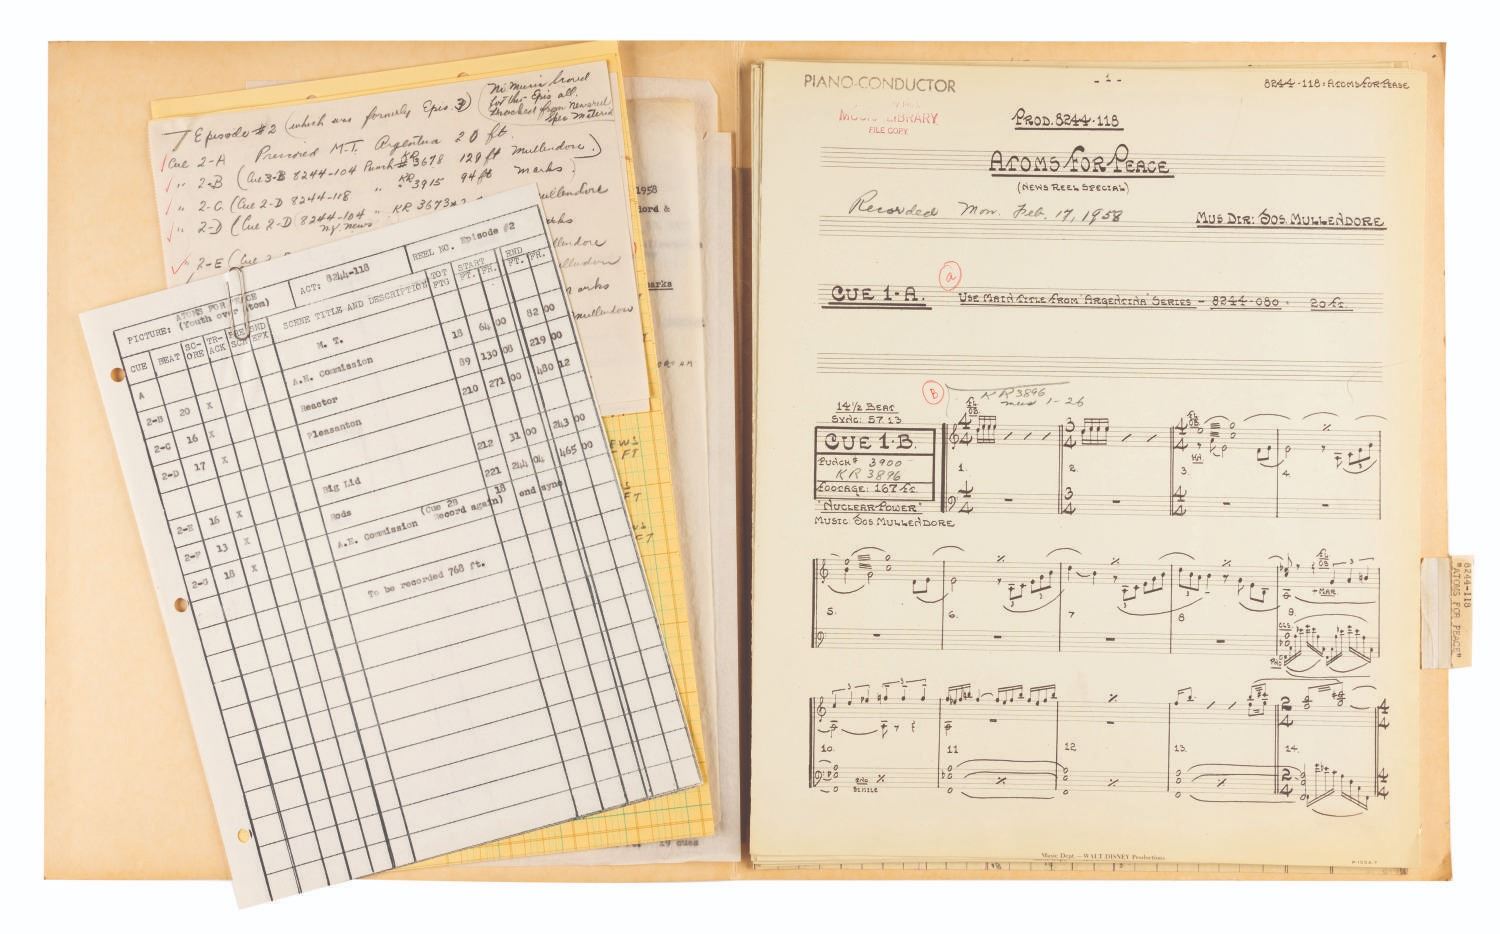 Episode #2 (which was formerly Epis. 3)
for this Epis all.
Cue 2-A Prescored M.T. Argentina 20 ft.
" 2-B (Cue 3-B 8244-104 Punch # KR 3678 129 ft Mullendore.)
" 2-C (Cue 2-D 8244-118 " KR 3915 94 ft marks)
" 2-D (Cue 2-D 8244-104 " KR 3673
2-E (Cue
Mullendore
1958
PICTURE: ATOMS FOR PEACE
(Youth over Atom)
ACT: 8244-118
REEL NO. Episode #2
CUE BEAT SCORE TRACK PRE SCR SND EFX SCENE TITLE AND DESCRIPTION TOT FTG START FT. FR. END FT. FR.
A M. T.
2-B 20 X A.E. Commission 18 64 00 82 00
2-C 16 X Reactor 89 130 08 219 00
2-D 17 X Pleasanton 210 271 00 480 12
2-E 16 X Big Lid 212 31 00 243 00
2-F 13 X Rods 221 244 04 465 00
2-G 18 X A.E. Commission (Cue 2B Record again) 18 end sync
To be recorded 768 ft.
PIANO-CONDUCTOR
- 1 -
8244-118 : ATOMS FOR PEACE
MUSIC LIBRARY
FILE COPY
PROD. 8244-118
ATOMS FOR PEACE
(NEWS REEL SPECIAL)
Recorded Mon. Feb. 17, 1958
MUS DIR: JOS. MULLENDORE
CUE 1-A.
a
USE MAIN TITLE FROM "ARGENTINA" SERIES - 8244-080 - 20 ft.
B
KR 3896
mus 1-26
14½ BEAT
SYNC: 57 13
CUE 1-B.
PUNCH # 3900
KR 3896
FOOTAGE: 167 ft.
"NUCLEAR POWER"
MUSIC: JOS. MULLENDORE
1. 2. 3. 4.
5. 6. 7 8 9.
+ MAR.
10. 11 12 13. 14.
Music Dept. — WALT DISNEY Productions
8244-118
"ATOMS FOR PEACE"